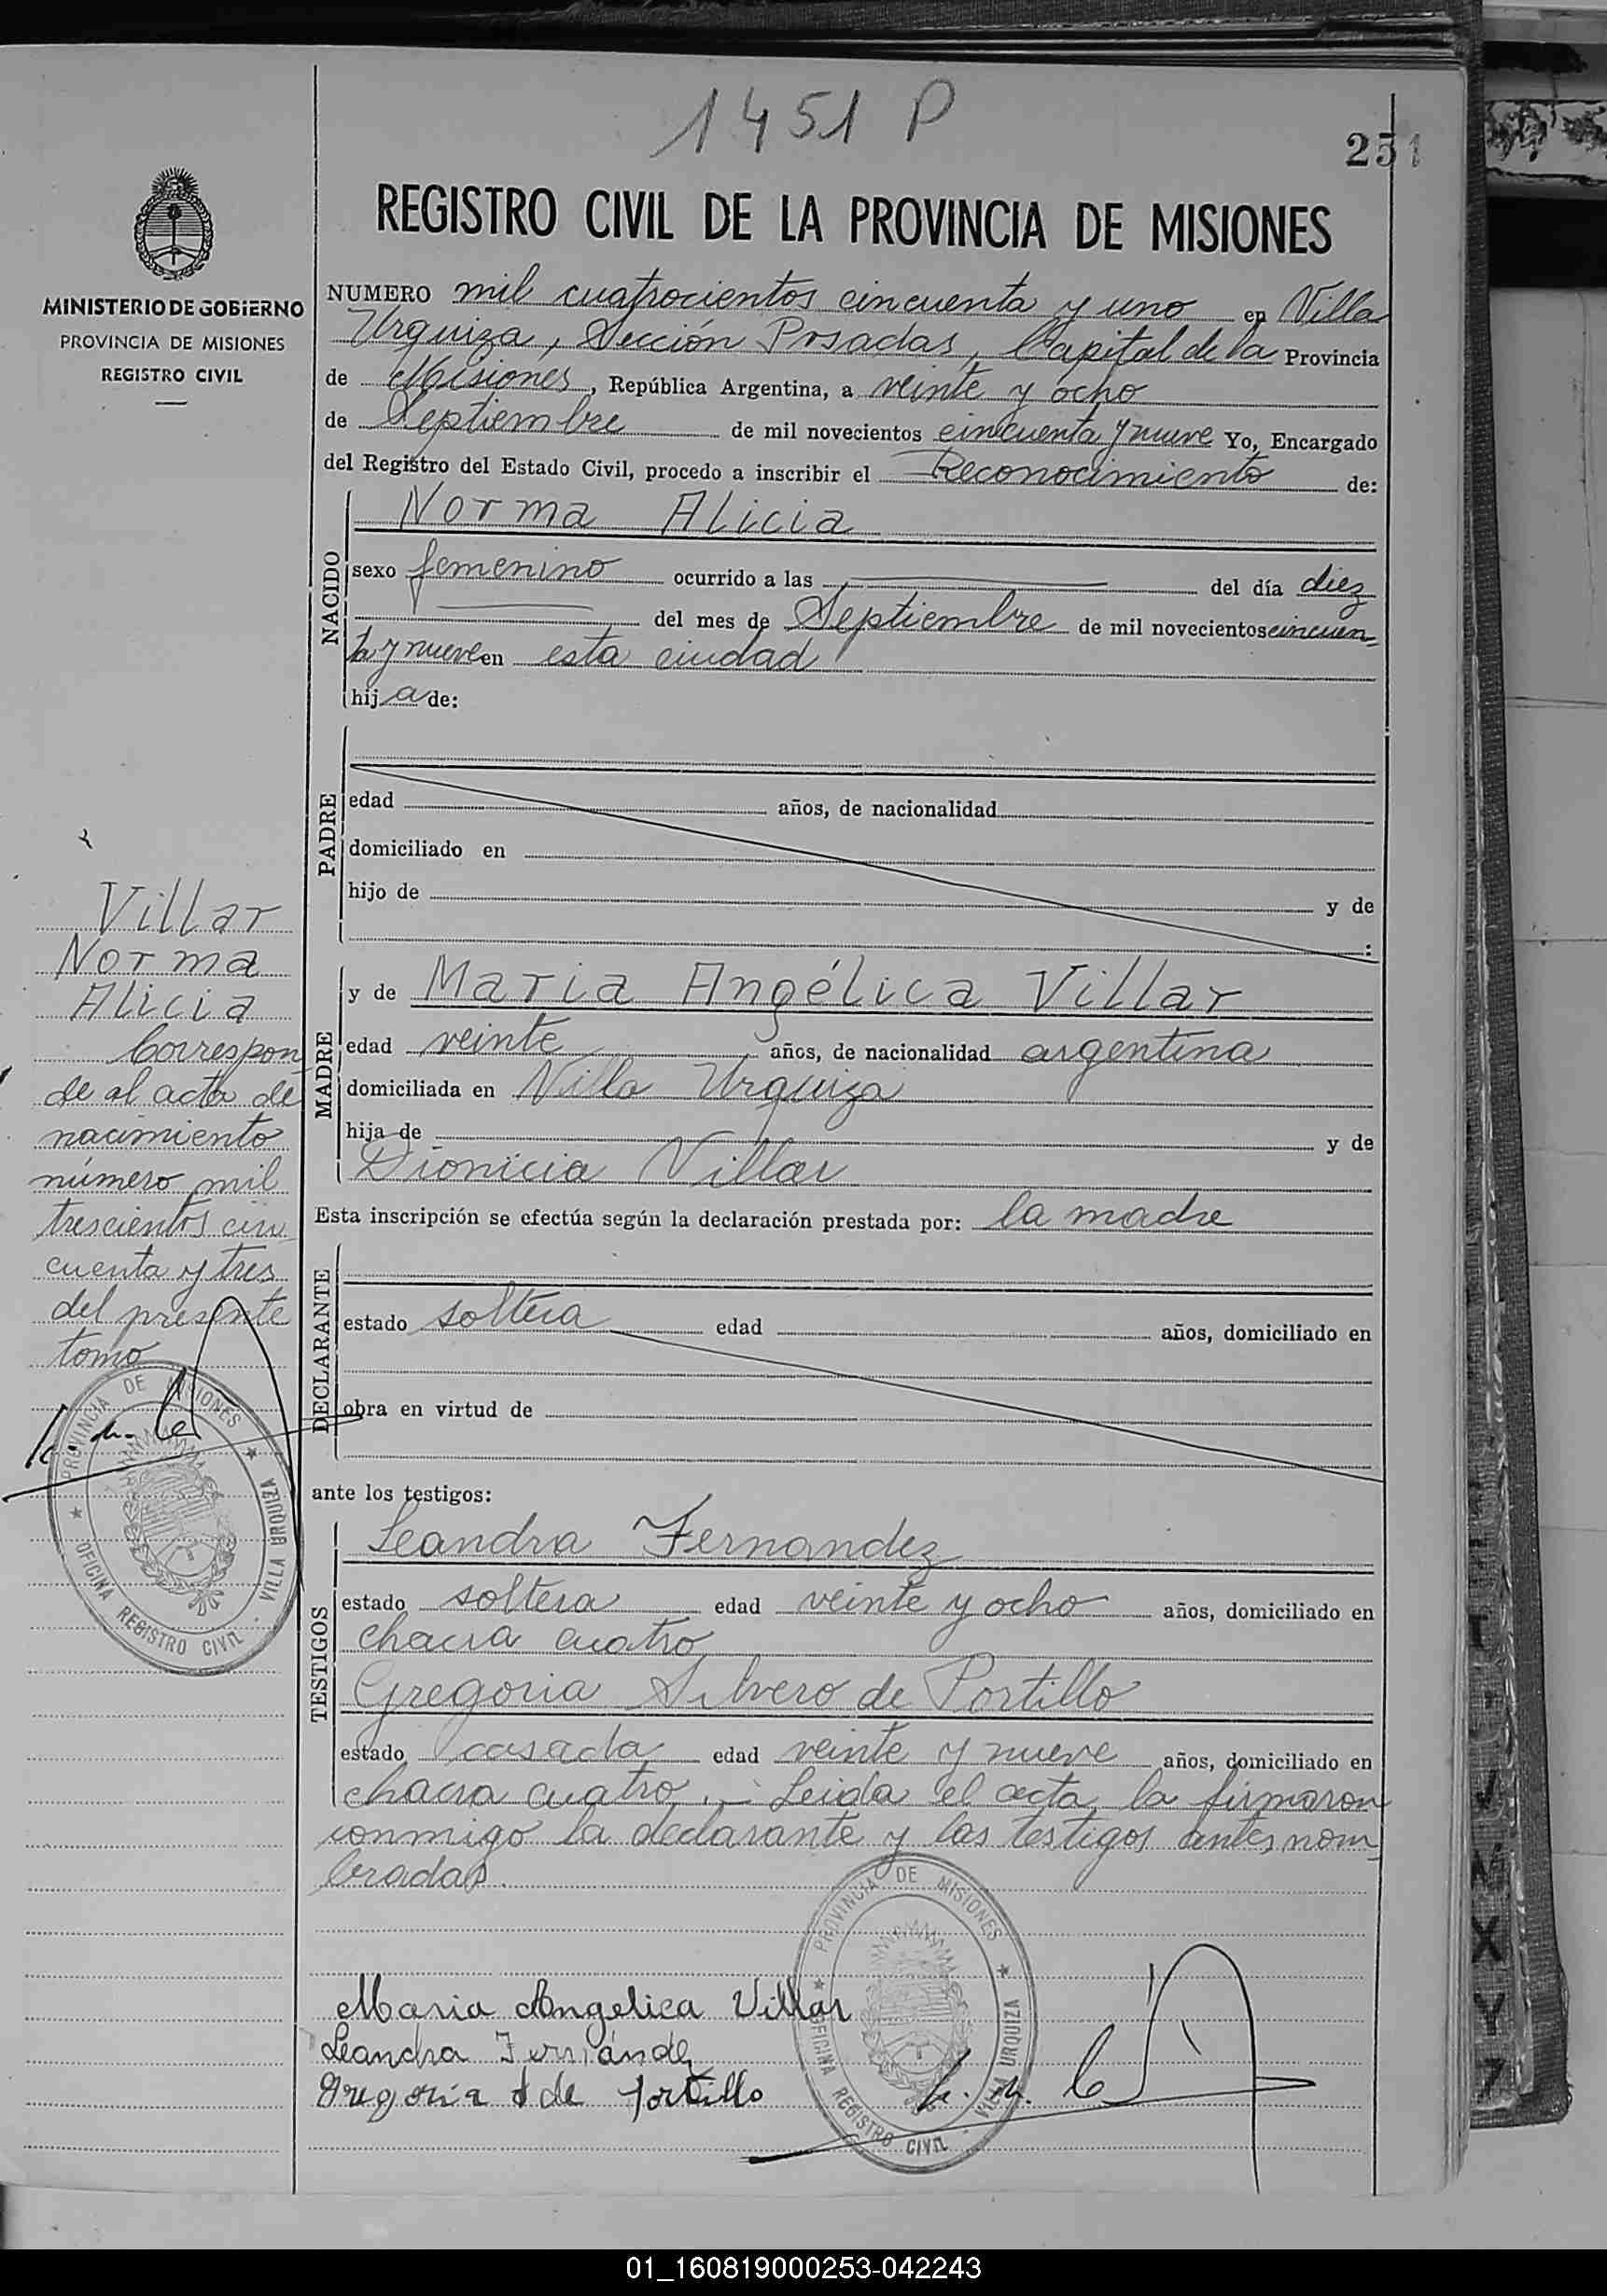 1451 P
251
REGISTRO CIVIL DE LA PROVINCIA DE MISIONES
MINISTERIO DE GOBIERNO
PROVINCIA DE MISIONES
REGISTRO CIVIL
NUMERO mil cuatrocientos cincuenta y uno en Villa
Urquiza, Sección Posadas, Capital de la Provincia
de Misiones, República Argentina, a veinte y ocho
de Septiembre de mil novecientos cincuenta y nueve Yo, Encargado
del Registro del Estado Civil, procedo a inscribir el Reconocimiento de:
NACIDO
Norma Alicia
sexo femenino ocurrido a las del día diez
del mes de Septiembre de mil novecientos cincuen-
ta y nueve en esta ciudad
hija de:
PADRE
edad años, de nacionalidad
domiciliado en
hijo de y de
:
MADRE
y de Maria Angélica Villar
edad veinte años, de nacionalidad argentina
domiciliada en Villa Urquiza
hija de y de
Dionicia Villar
Esta inscripción se efectúa según la declaración prestada por: la madre
DECLARANTE
estado soltera edad años, domiciliado en
obra en virtud de
ante los testigos:
TESTIGOS
Leandra Fernandez
estado soltera edad veinte y ocho años, domiciliado en
chacra cuatro
Gregoria Silvero de Portillo
estado casada edad veinte y nueve años, domiciliado en
chacra cuatro.- Leida el acta, la firmaron
conmigo la declarante y las testigos antes nom-
bradas.
Maria Angelica Villar
Leandra Fernández
Gregoria S de Portillo
PROVINCIA DE MISIONES
OFICINA REGISTRO CIVIL - VILLA URQUIZA
Villar
Norma
Alicia
Correspon
de al acta de
nacimiento
número mil
trescientos cin
cuenta y tres
del presente
tomo
PROVINCIA DE MISIONES
OFICINA REGISTRO CIVIL - VILLA URQUIZA
01_160819000253-042243